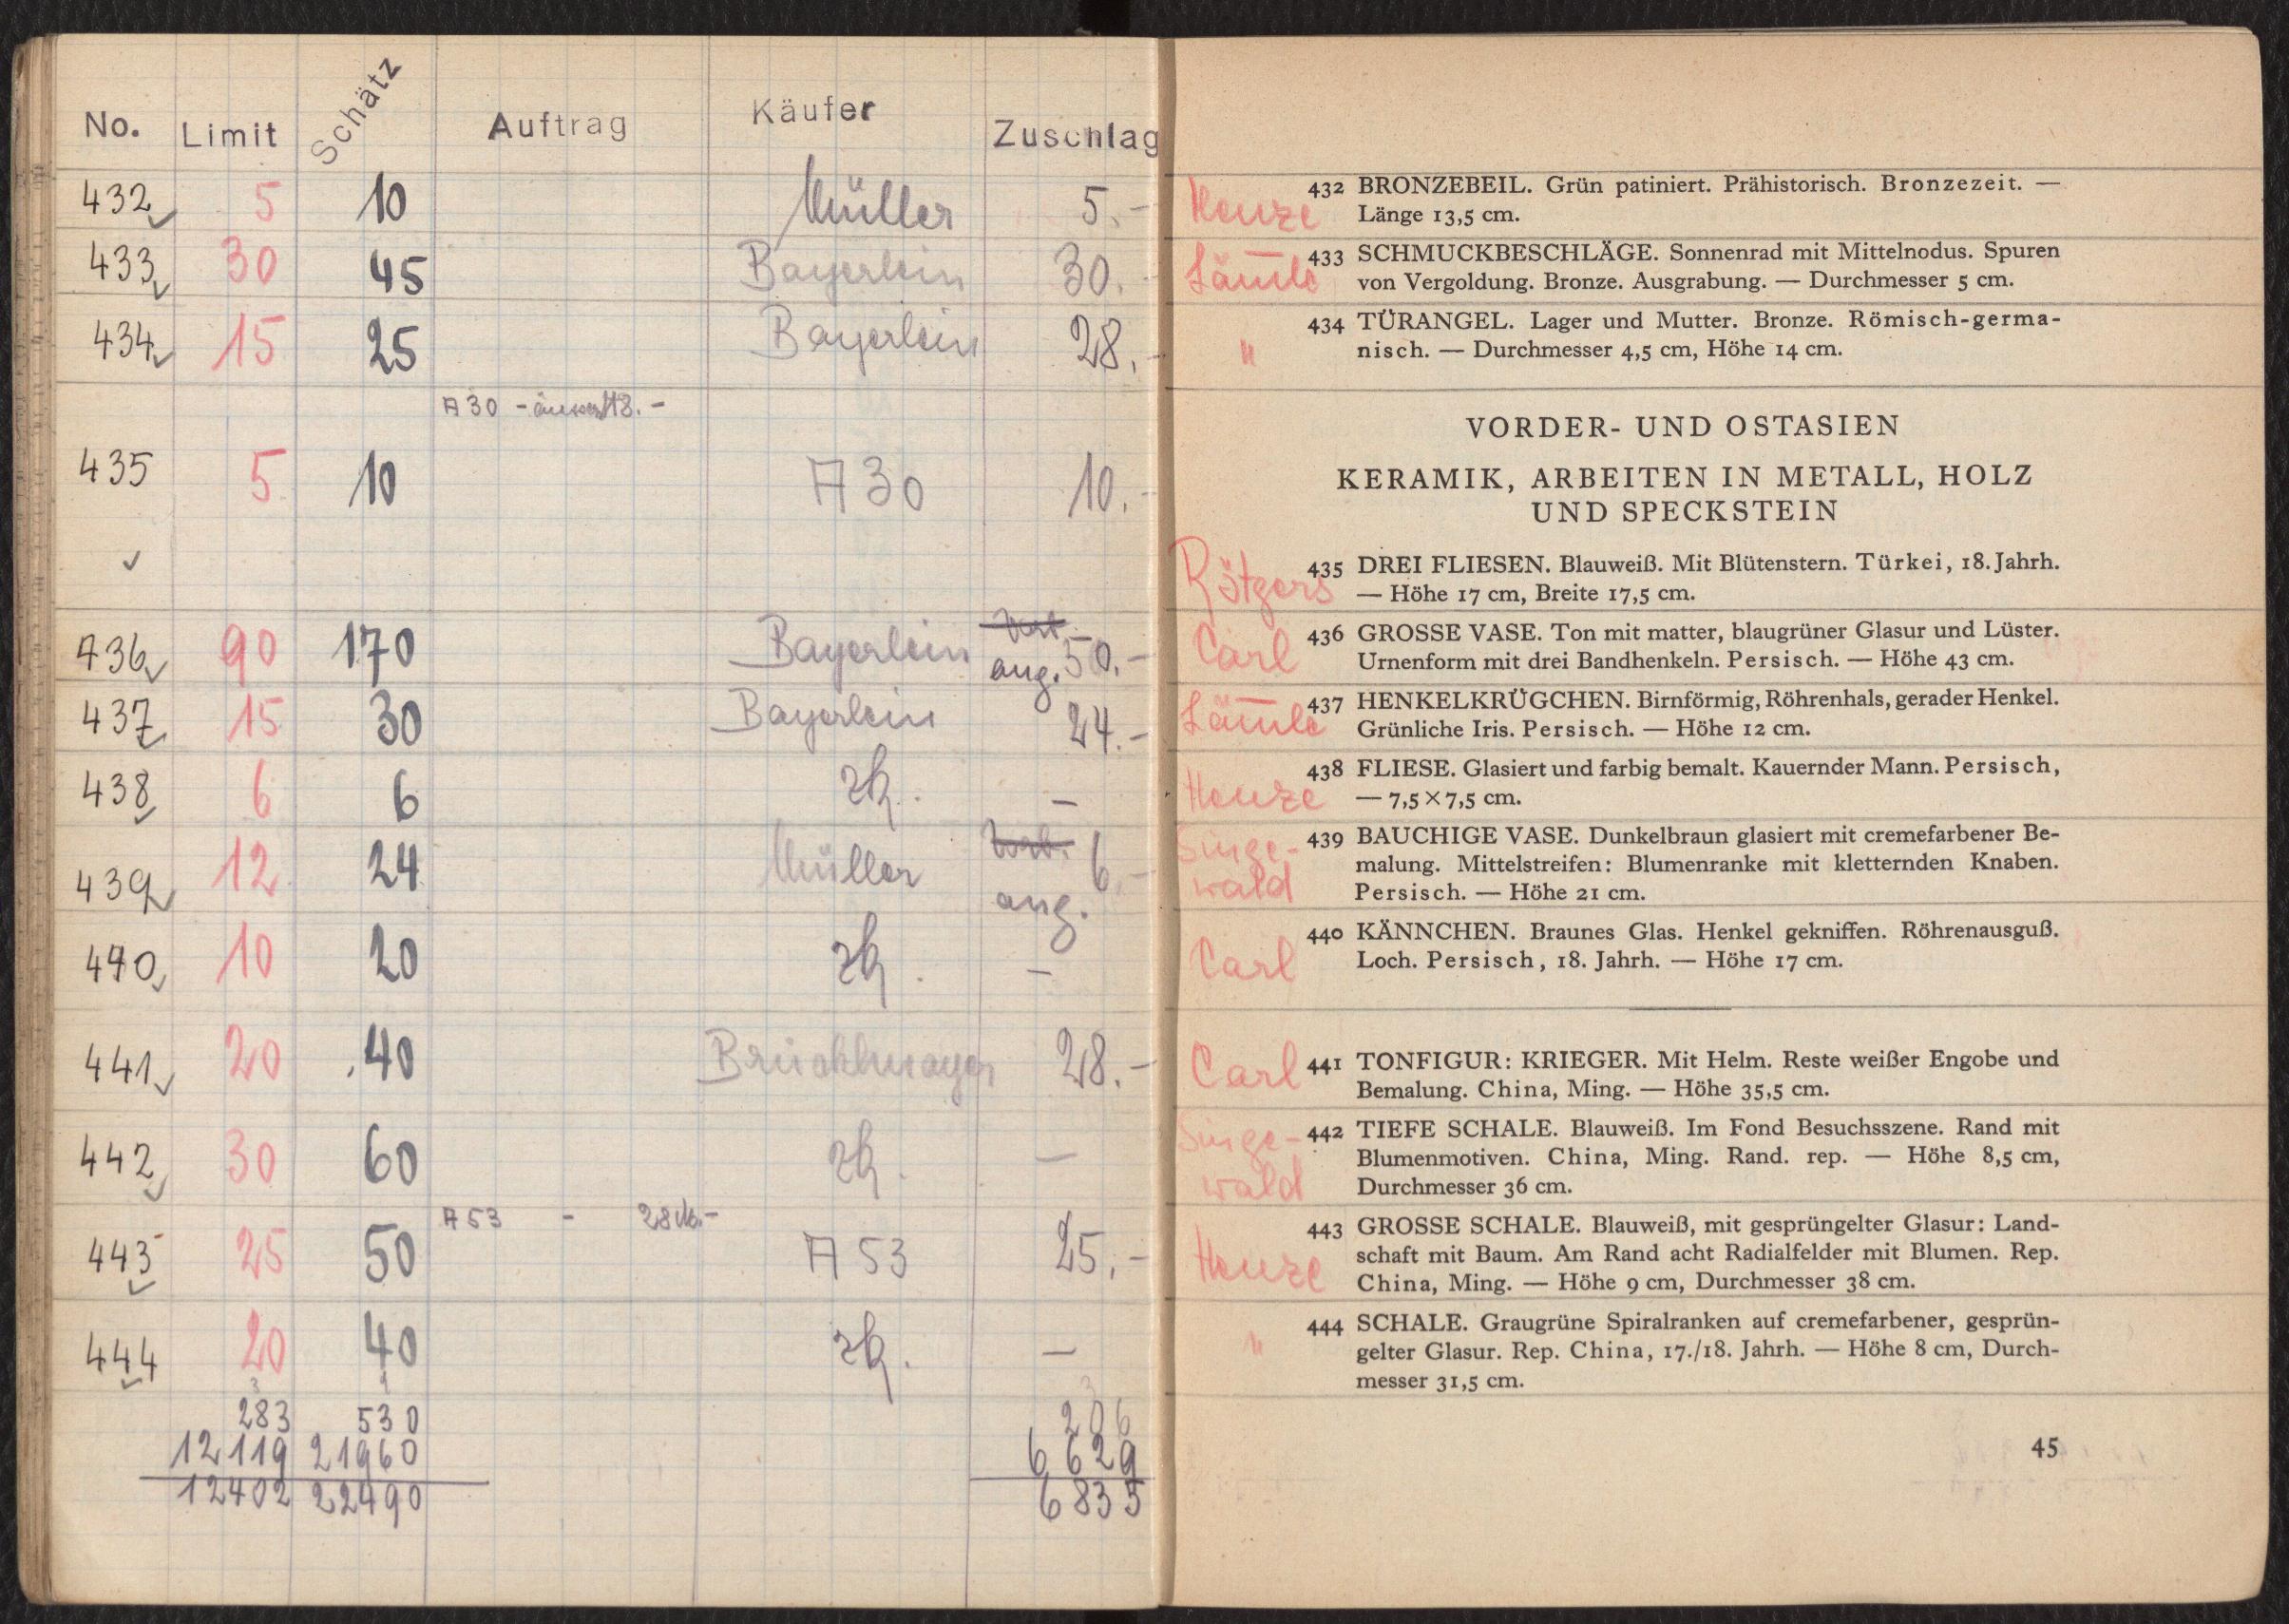 No. Limit Schätz Auftrag Käufer Zuschlag
432 5 10 Müller 5.-
433 30 45 Bayerlein 30.-
434 15 25 Bayerlein 28.-
A 30 -
435 5 10 A 30 10.-
436 90 170 Bayerlein ang. 50.-
437 15 30 Bayerlein 24.-
438 6 6 zk. -
439 12 24 Müller 6.-
ang.
440 10 20 zk. -
441 20 40 Bruckmayer 28.-
442 30 60 zk. -
A 53 -
443 25 50 A 53 25.-
444 20 40 zk. -
283 530 206
12119 21960 6629
12402 22490 6835
432 BRONZEBEIL. Grün patiniert. Prähistorisch. Bronzezeit. —
Henze Länge 13,5 cm.
433 SCHMUCKBESCHLÄGE. Sonnenrad mit Mittelnodus. Spuren
Lämle von Vergoldung. Bronze. Ausgrabung. — Durchmesser 5 cm.
434 TÜRANGEL. Lager und Mutter. Bronze. Römisch-germa-
" nisch. — Durchmesser 4,5 cm, Höhe 14 cm.
VORDER- UND OSTASIEN
KERAMIK, ARBEITEN IN METALL, HOLZ
UND SPECKSTEIN
435 DREI FLIESEN. Blauweiß. Mit Blütenstern. Türkei, 18. Jahrh.
Rötgers — Höhe 17 cm, Breite 17,5 cm.
436 GROSSE VASE. Ton mit matter, blaugrüner Glasur und Lüster.
Carl Urnenform mit drei Bandhenkeln. Persisch. — Höhe 43 cm.
437 HENKELKRÜGCHEN. Birnförmig, Röhrenhals, gerader Henkel.
Lämle Grünliche Iris. Persisch. — Höhe 12 cm.
438 FLIESE. Glasiert und farbig bemalt. Kauernder Mann. Persisch,
Henze — 7,5 × 7,5 cm.
Singe- 439 BAUCHIGE VASE. Dunkelbraun glasiert mit cremefarbener Be-
wald malung. Mittelstreifen: Blumenranke mit kletternden Knaben.
Persisch. — Höhe 21 cm.
440 KÄNNCHEN. Braunes Glas. Henkel gekniffen. Röhrenausguß.
Carl Loch. Persisch, 18. Jahrh. — Höhe 17 cm.
Carl 441 TONFIGUR: KRIEGER. Mit Helm. Reste weißer Engobe und
Bemalung. China, Ming. — Höhe 35,5 cm.
Singe- 442 TIEFE SCHALE. Blauweiß. Im Fond Besuchsszene. Rand mit
wald Blumenmotiven. China, Ming. Rand. rep. — Höhe 8,5 cm,
Durchmesser 36 cm.
443 GROSSE SCHALE. Blauweiß, mit gesprüngelter Glasur: Land-
Henze schaft mit Baum. Am Rand acht Radialfelder mit Blumen. Rep.
China, Ming. — Höhe 9 cm, Durchmesser 38 cm.
444 SCHALE. Graugrüne Spiralranken auf cremefarbener, gesprün-
" gelter Glasur. Rep. China, 17./18. Jahrh. — Höhe 8 cm, Durch-
messer 31,5 cm.
45